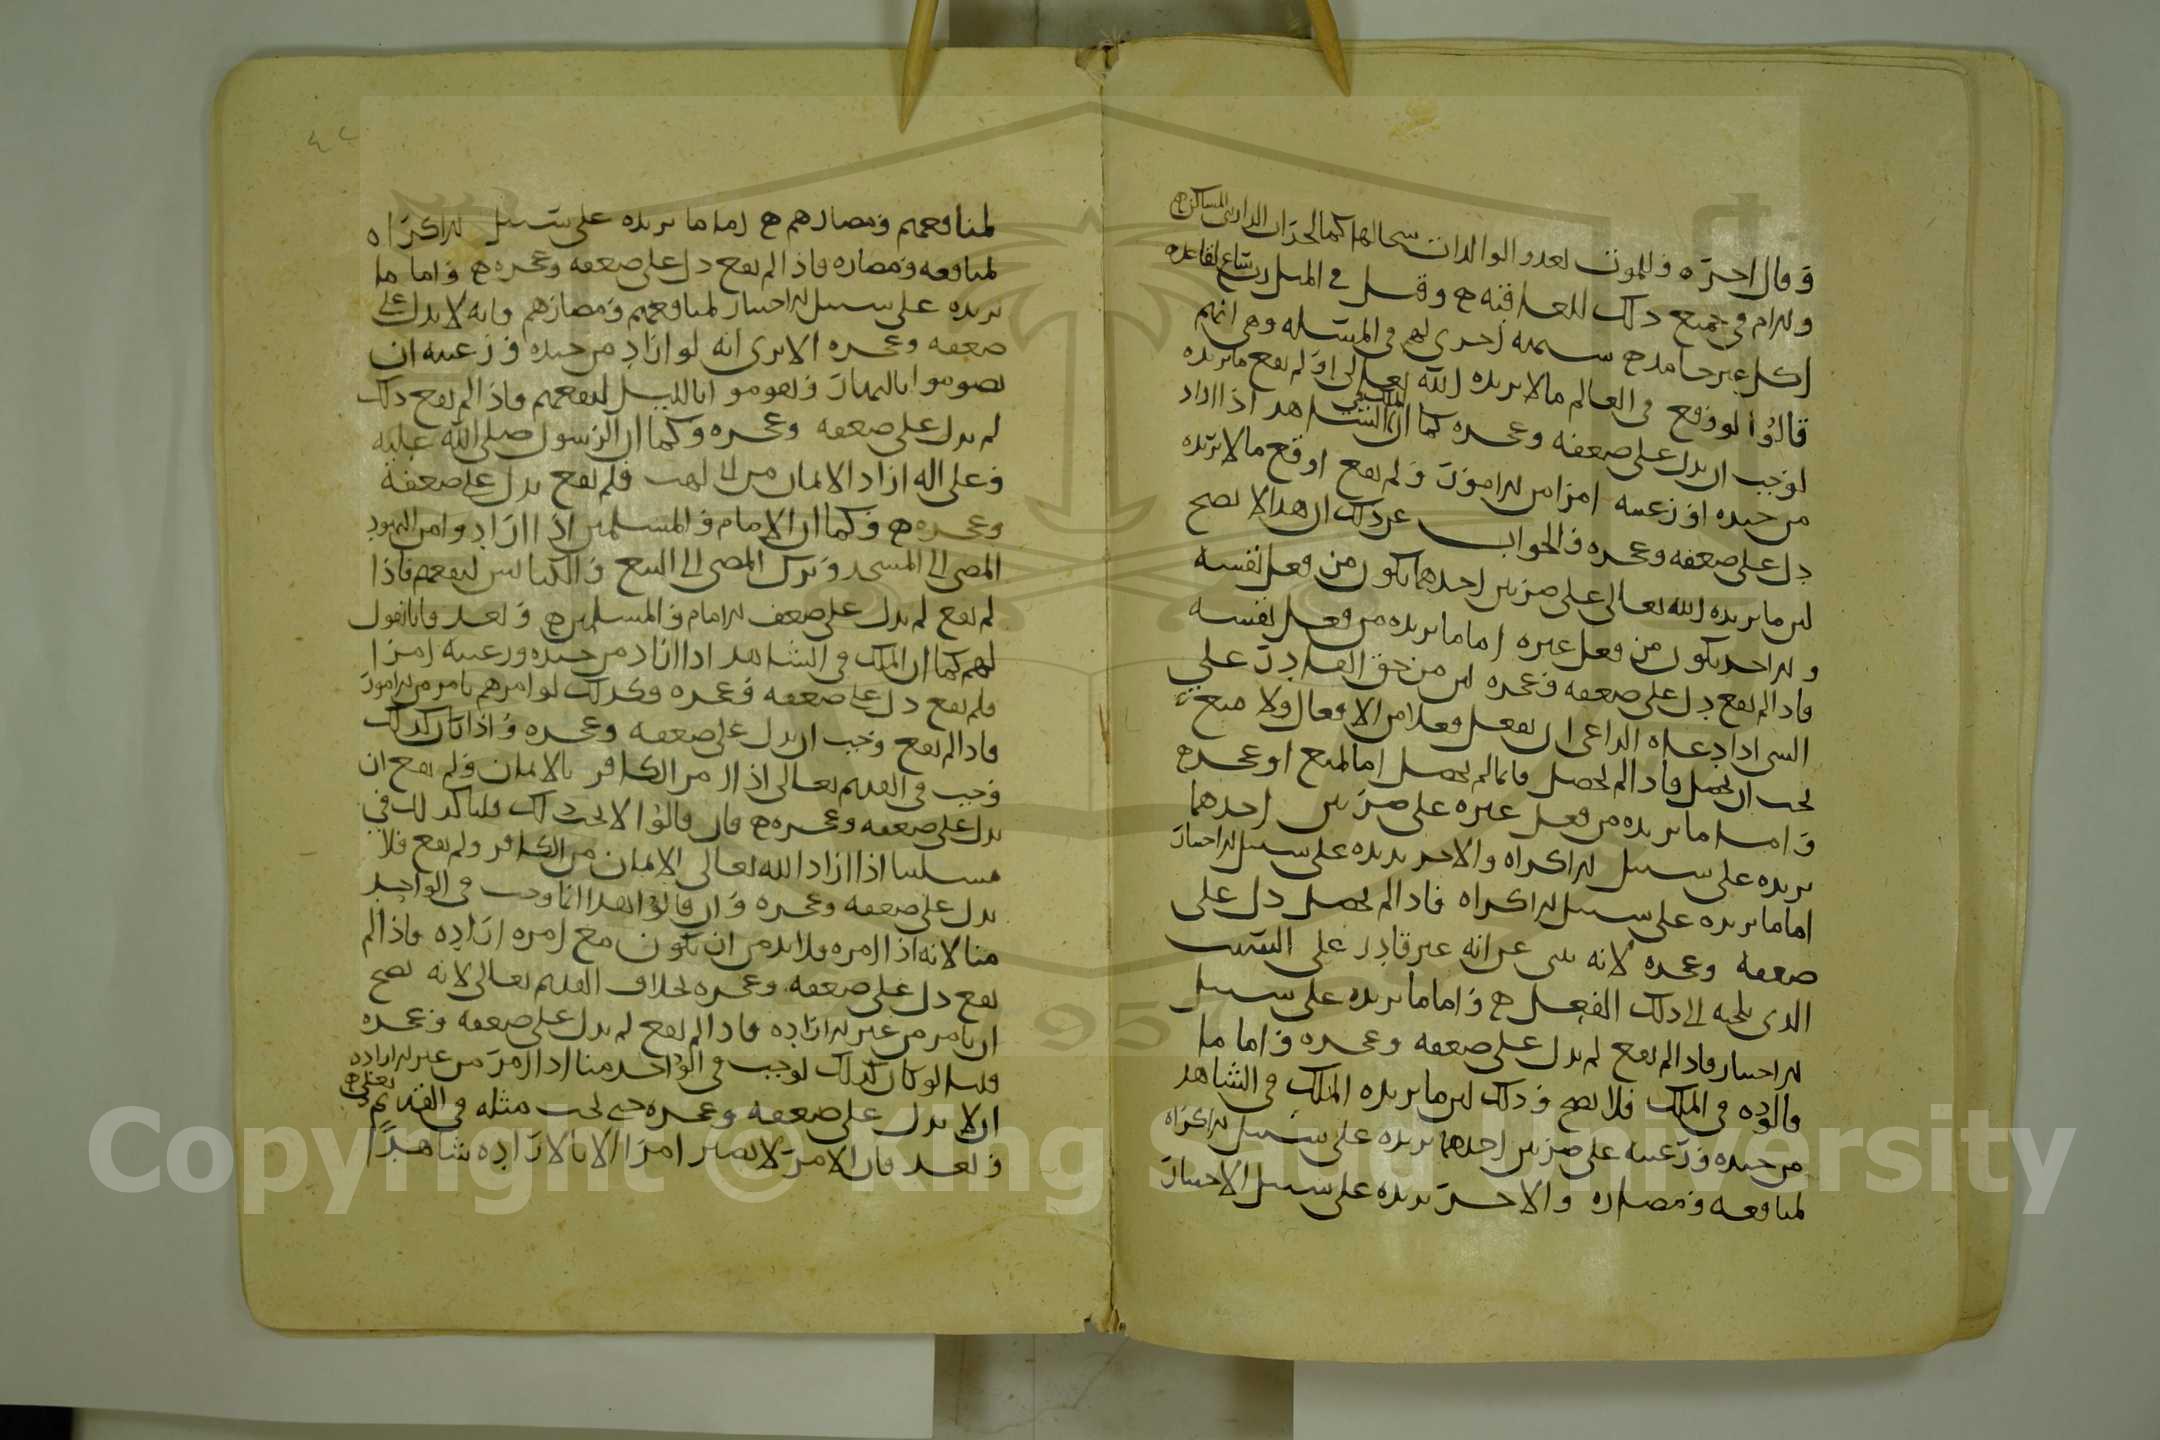 وقال اخره وللموت تغدو الوالدات سخالها كما لخراب الدار تبنى المساكن ه
واللام في جميع ذلك للعاقبة ه وقيل في المثل رب ساع لقاعد ه
اكل غير حامد ه شبهة أخرى لهم في المسئلة وهي انهم
قالوا لو وقع في العالم ما لا يريده الله تعالى او لم يقع ما يريده
لوجب ان يدل على ضعفه وعجزه كما ان الملك في الشاهد اذا اراد
من جنده او رعيته امرا من الامور ولم يقع او وقع ما لا يريده
دل على ضعفه وعجزه والجواب عن ذلك ان هذا لا يصح
لان ما يريده الله تعالى على ضربين احدهما يكون من فعل نفسه
والاخر يكون من فعل غيره اما ما يريده من فعل نفسه
فاذا لم يقع دل على ضعفه وعجزه لان من حق القادر على
الشئ اذا دعاه الداعي ان يفعل فعلا من الافعال ولا منع
يجب ان يحصل فاذا لم يحصل فانما لم يحصل اما لمنع او عجز ه
واما ما يريده من فعل غيره على ضربين احدهما
يريده على سبيل الاكراه والاخر يريده على سبيل الاختيار
اما ما يريده على سبيل الاكراه فاذا لم يحصل دل على
ضعفه وعجزه لانه ينبى عن انه غير قادر على السبب
الذي يلجيه الى ذلك الفعل ه واما ما يريده على سبيل
الاختيار فاذا لم يقع لم يدل على ضعفه وعجزه واما ما
قالوه في الملك فلا يصح وذلك لان ما يريده الملك في الشاهد
من جنده ورعيته على ضربين احدهما يريده على سبيل الاكراه
لمنافعه ومضاره والاخر يريده على سبيل الاختيار
لمنافعهم ومضارهم ه اما ما يريده على سبيل الاكراه
لمنافعه ومضاره فاذا لم يقع دل على ضعفه وعجزه ه واما ما
يريده على سبيل الاختيار لمنافعهم ومضارهم فانه لا يدل على
ضعفه وعجزه الا ترى انه لو اراد من جنده ورعيته ان
يصوموا بالنهار ويقوموا بالليل لنفعهم فاذا لم يقع ذلك
لم يدل على ضعفه وعجزه وكما ان الرسول صلى الله عليه
وعلى اله اراد الايمان من ابي لهب فلم يقع يدل على ضعفه
وعجزه ه وكما ان الامام والمسلمين اذا ارادوا من اليهود
المضي الى المسجد وترك المضي الى البيع والكنائس لنفعهم فاذا
لم يقع لم يدل على ضعف الامام والمسلمين ه وبعد فانا نقول
لهم كما ان الملك في الشاهد اذا اراد من جنده ورعيته امرا
فلم يقع دل على ضعفه وعجزه وكذلك لو امرهم بامر من الامور
فاذا لم يقع وجب ان يدل على ضعفه وعجزه واذا كان كذلك
وجب في القديم تعالى اذا امر الكافر بالايمان ولم يقع ان
يدل على ضعفه وعجزه ه فان قالوا لا يجب ذلك قلنا كذلك في
مسئلتنا اذا اراد الله تعالى الايمان من الكافر ولم يقع فلا
يدل على ضعفه وعجزه وان قالوا هذا انما وجب في الواحد
منا لانه اذا امره فلا بد من ان يكون مع امره ارادة فاذا لم
يقع دل على ضعفه وعجزه بخلاف القديم تعالى لانه يصح
ان يامر من غير الارادة فاذا لم يقع لم يدل على ضعفه وعجزه
قلنا لو كان كذلك لوجب في الواحد منا اذا امر من غير الارادة
ان لا يدل على ضعفه وعجزه حتى يجب مثله في القديم تعالى ه
وبعد فان الامر لا يصير امرا الا بالارادة شاهدا
Copyright © King Saud University
1957